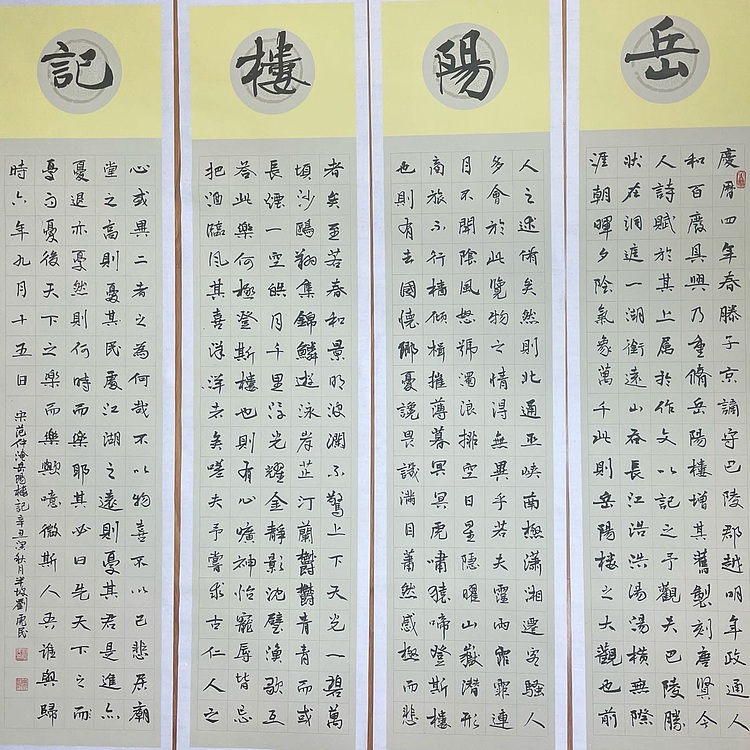 岳陽樓記
慶曆四年春滕子京謫守巴陵郡越明年政通人
和百廢具興乃重脩岳陽樓增其舊製刻唐賢今
人詩賦於其上屬於作文以記之予觀夫巴陵勝
狀在洞庭一湖銜遠山吞長江浩浩湯湯橫無際
涯朝暉夕陰氣象萬千此則岳陽樓之大觀也前
人之述備矣然則北通巫峽南極瀟湘遷客騷人
多會於此覽物之情得無異乎若夫霪雨霏霏連
月不開陰風怒號濁浪排空日星隱曜山嶽潛形
商旅不行檣傾楫摧薄暮冥冥虎嘯猿啼登斯樓
也則有去國懷鄉憂讒畏譏滿目蕭然感極而悲
者矣至若春和景明波瀾不驚上下天光一碧萬
頃沙鷗翔集錦鱗遊泳岸芷汀蘭鬱鬱青青而或
長煙一空皓月千里浮光耀金靜影沈璧漁歌互
答此樂何極登斯樓也則有心曠神怡寵辱皆忘
把酒臨風其喜洋洋者矣嗟夫予嘗求古仁人之
心或異二者之為何哉不以物喜不以己悲居廟
堂之高則憂其民處江湖之遠則憂其君是進亦
憂退亦憂然則何時而樂耶其必曰先天下之而
憂而憂後天下之樂而樂歟噫微斯人吾誰與歸
時六年九月十五日
宋范仲淹岳陽樓記辛丑深秋月半坡劉